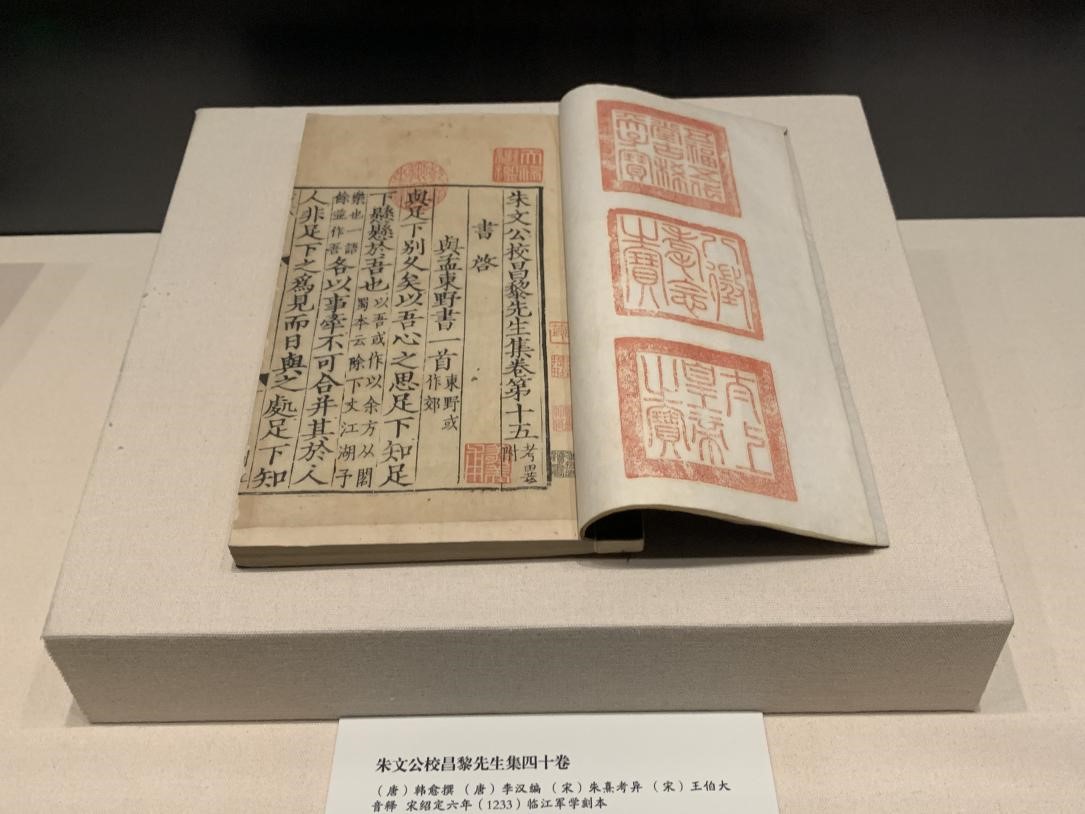 五福五代
堂古稀
天子寶
八徵
耄念
之寶
太上
皇帝
之寶
朱文公校昌黎先生集卷第十五考異附
書啓
與孟東野書一首東野或作郊
與足下別久矣以吾心之思足下知足
下懸懸於吾也以吾或作以余方从閣蜀本云除下丈江湖子
樂也一語餘並作吾各以事牽不可合并其於人
人非足下之為見而日與之處足下知
朱文公校昌黎先生集四十卷
（唐）韩愈撰（唐）李汉编（宋）朱熹考异（宋）王伯大
音释 宋绍定六年（1233）临江军学刻本